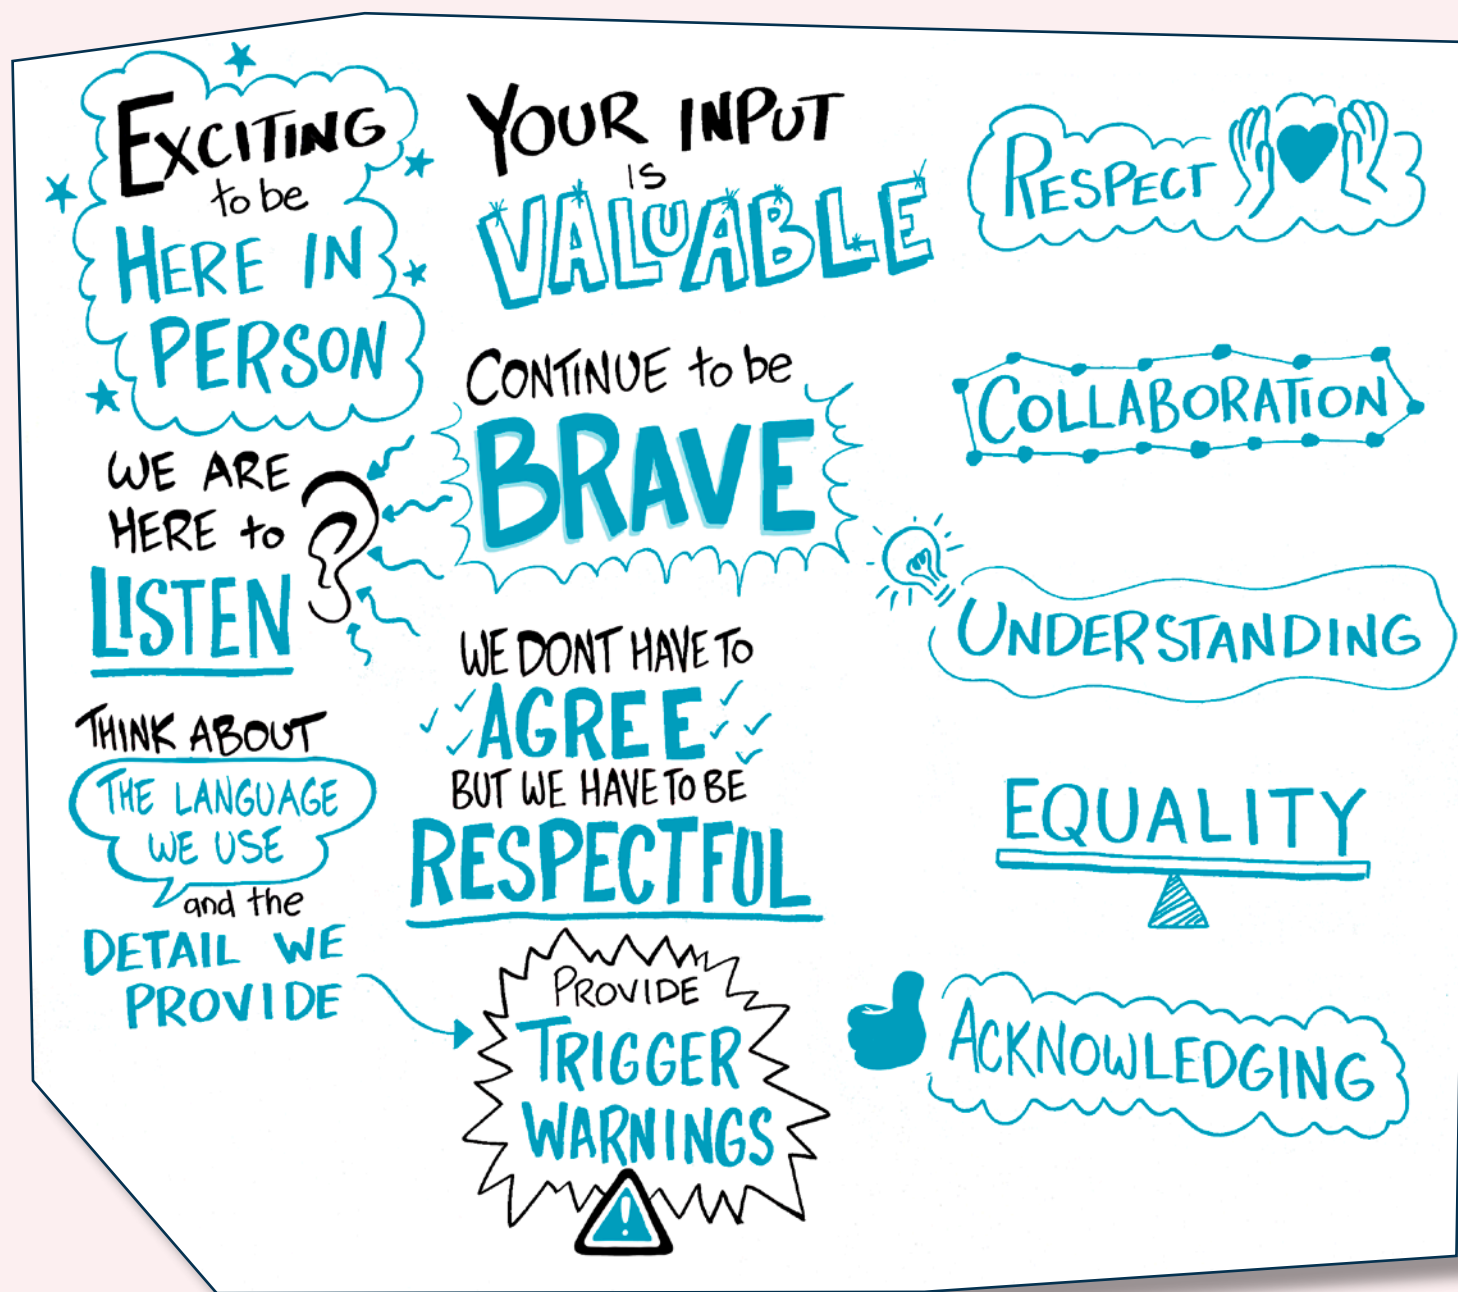 EXCITING
to be
HERE IN
PERSON
WE ARE
HERE to
LISTEN
THINK ABOUT
THE LANGUAGE
WE USE
and the
DETAIL WE
PROVIDE
YOUR INPUT
IS
VALUABLE
CONTINUE to be
BRAVE
WE DONT HAVE TO
AGREE
BUT WE HAVE TO BE
RESPECTFUL
PROVIDE
TRIGGER
WARNINGS
!
RESPECT
COLLABORATION
UNDERSTANDING
EQUALITY
ACKNOWLEDGING